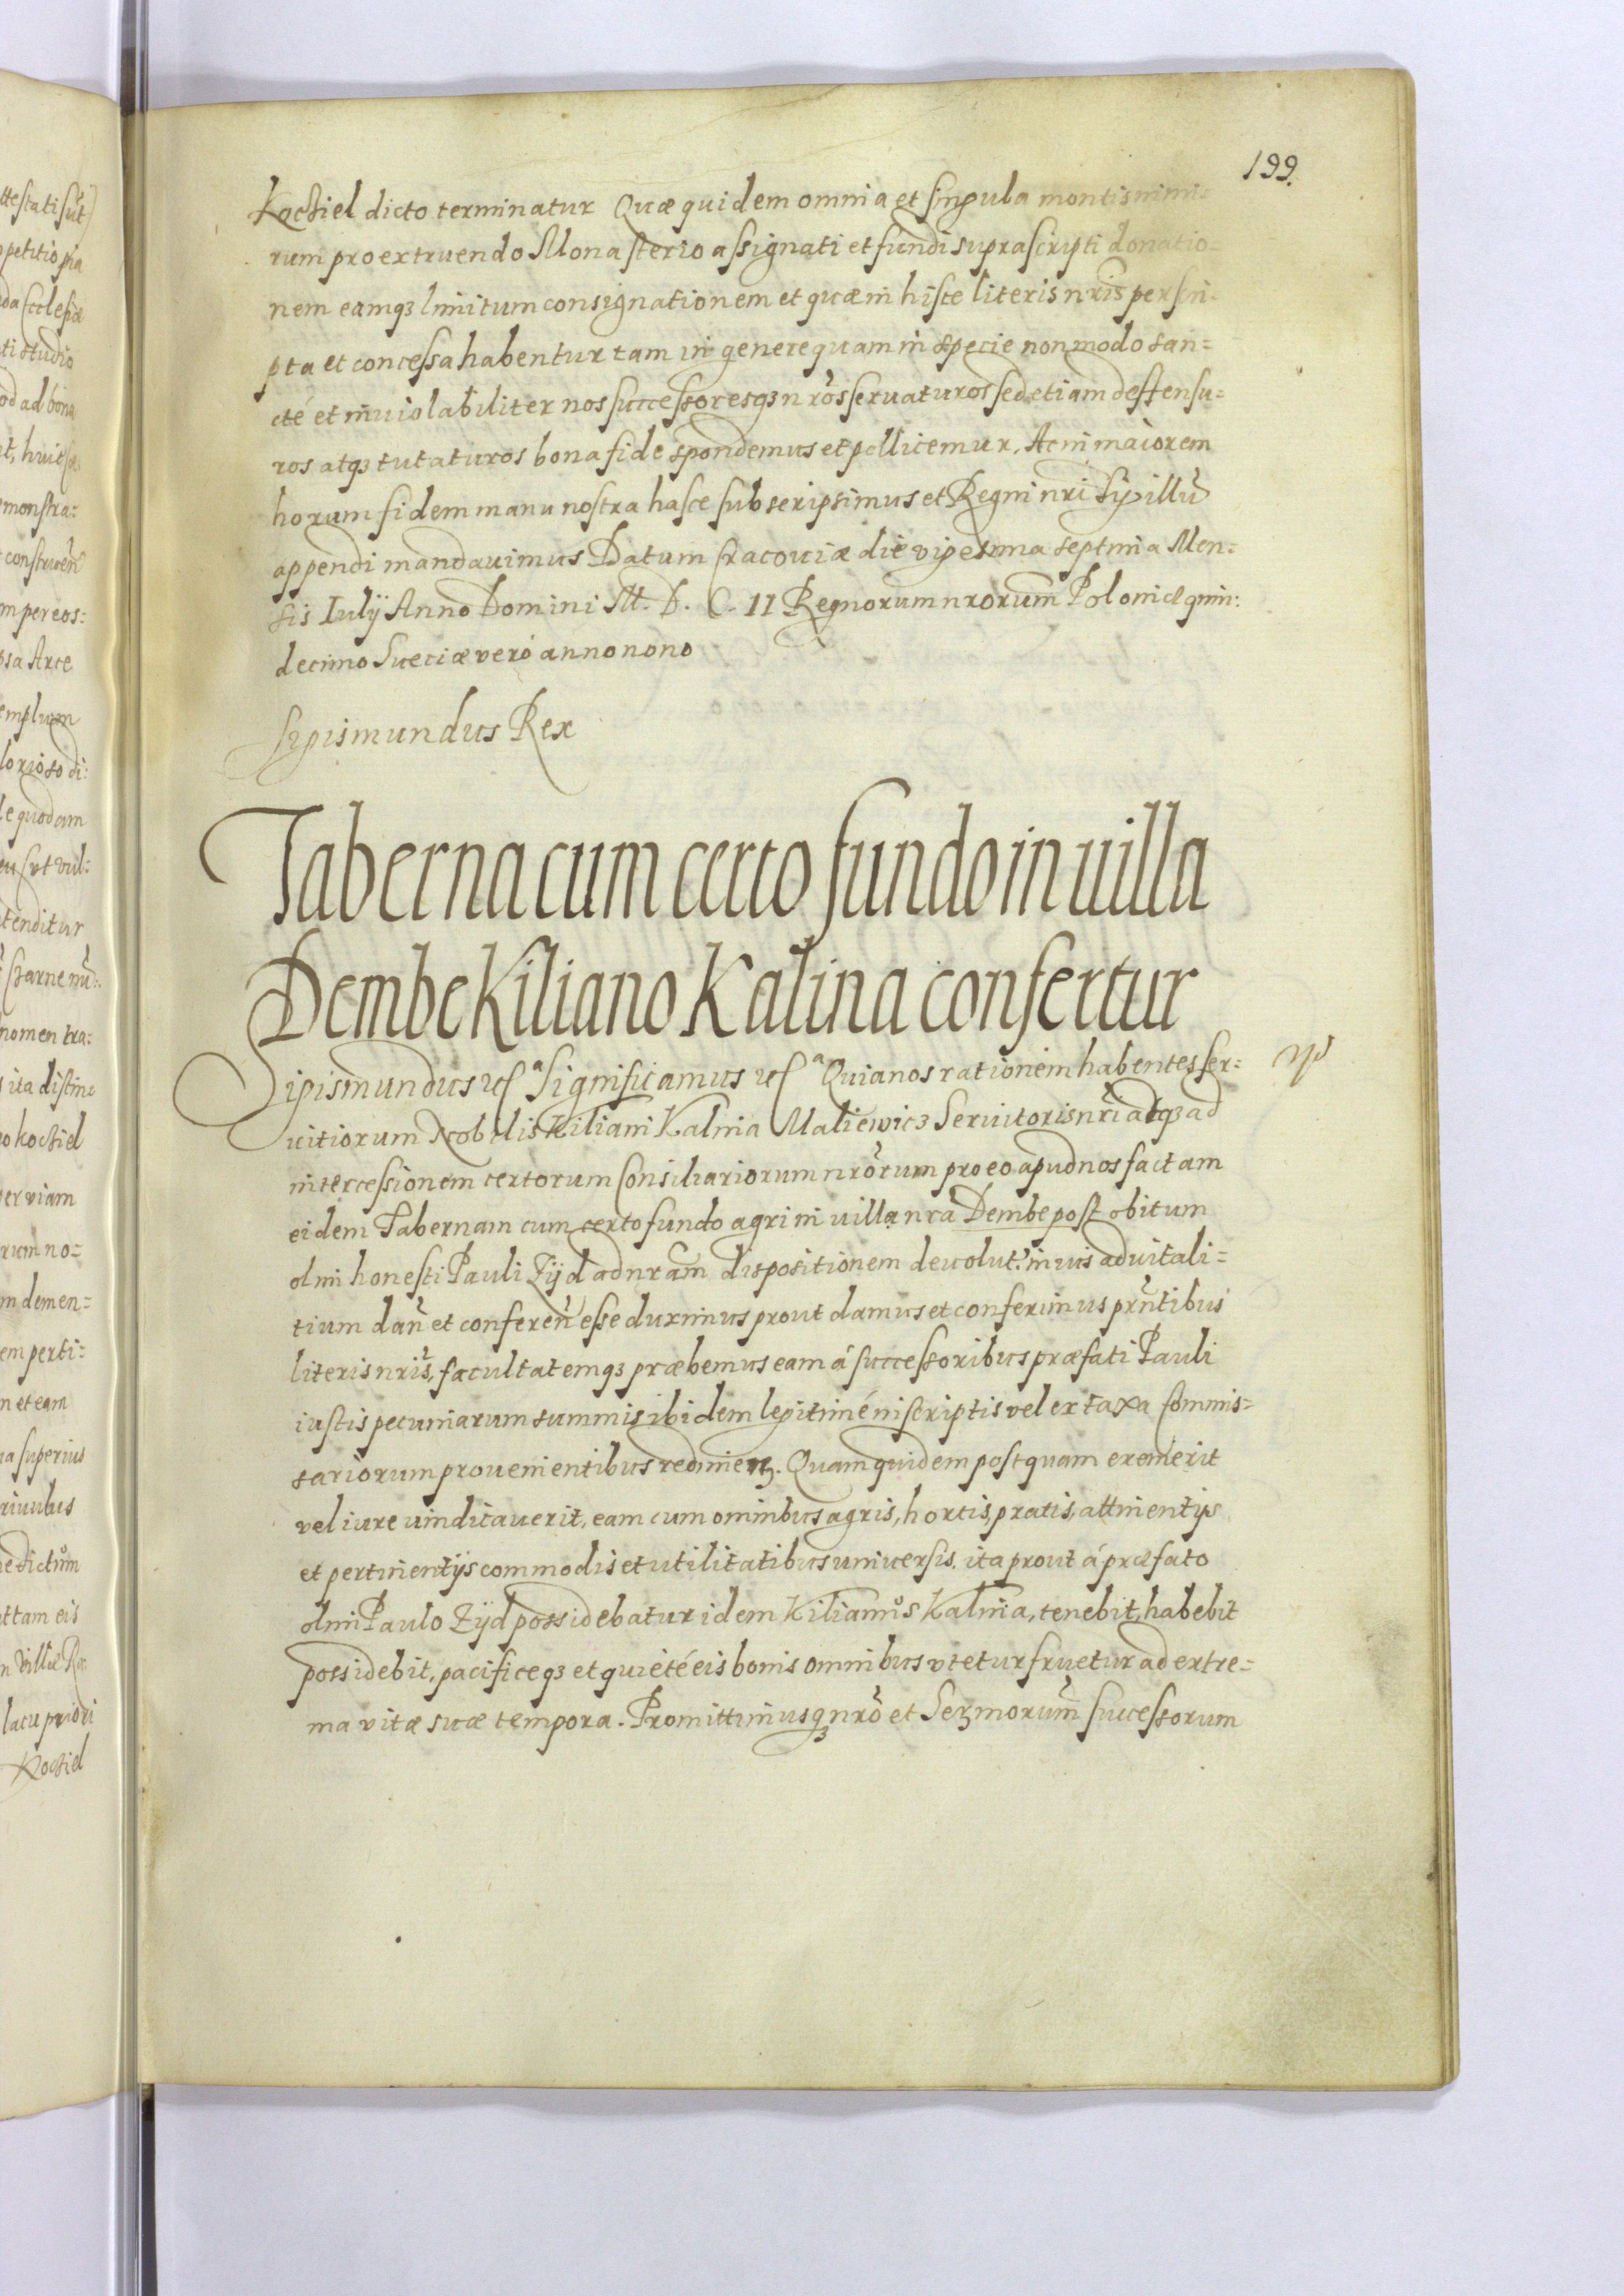 199.
Kochiel dicto terminatur Quæ quidem omnia et singula montis nimi-
rum pro extruendo Monasterio assignati et fundi suprascripti donatio=
nem eamqʒ limitum consignationem et quæ in hisce literis nr̃is perscri-
pta et concessa habentur tam in genere quam in specie non modo san=
cté et inuiolabiliter nos successoresqʒ nr̃os seruaturos sed etiam deffensu=
ros atqʒ tutaturos bona fide spondemus et pollicemur. Ac in maiorem
horum fidem manu nostra hasce subscripsimus et Regni nr̃i Sigillũ
appendi mandauimus Datum Cracouiæ die vigesima septima Men=
sis Iulÿ Anno Domini M. D. C. II Regnorum nr̃orum Poloniæ quin:
decimo Sueciæ veró anno nono
Sigismundus Rex
Taberna cum certo fundo in uilla
Dembe Kiliano Kalina confertur
Sigismundus etc̃ᵃ Significamus etc̃ᵃ Quia nos rationem habentes ser=
uitiorum Nobilis Kiliani Kalina Maliewicʒ Seruitoris nr̃i atqʒ ad
intercessionem certorum Consiliariorum nr̃orum pro eo apud nos factam
eidem Tabernam cum certo fundo agri in uilla nr̃a Dembe post obitum
olim honesti Pauli Zÿd ad nr̃am dispositionem deuolut. in ius aduitali=
tium dañ et confereñ esse duximus prout damus et conferimus pñtibus
literis nr̃is, facultatemqʒ præbemus eam á successoribus præfati Pauli
iustis pecuniarum summis ibidem legitimé inscriptis vel ex taxa Commis=
sariorum prouenientibus redimenʒ. Quam quidem postquam exemerit
vel iure uindicauerit, eam cum omnibus agris, hortis, pratis, attinentÿs
et pertinentÿs commodis et utilitatibus uniuersis. ita prout á præfato
olim Paulo Zÿd possidebatur idem Kilianus Kalina, tenebit, habebit
possidebit, pacificeqʒ et quieté eis bonis omnibus vtetur fruetur ad extre=
ma vitæ suæ tempora. Promittimusqʒ nr̃o et Serʒmorum successorum